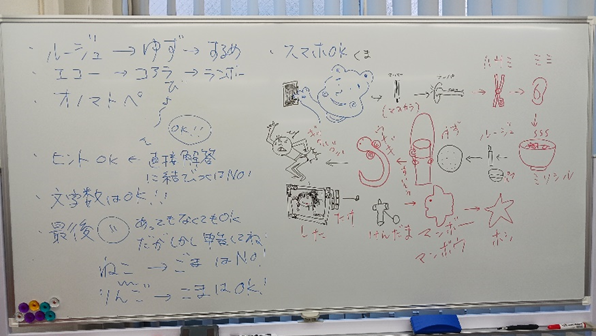 ・ルージュ→ゆず→するめ
・エコー→コアラ→ランボー
・オノマトペ
OK!!
・ヒントOK ← 直接解答
に結びつくはNO!
・文字数はOK!!
・最後 あってもなくてもOK
だがしかし申告してね!
ねこ → ごま はNO!
りんご→こまはOK!
・スマホOK
(マスカラ)
ミミ
ミソシル
ルージュ
けんだま
マンボー
マンボウ
ホシ